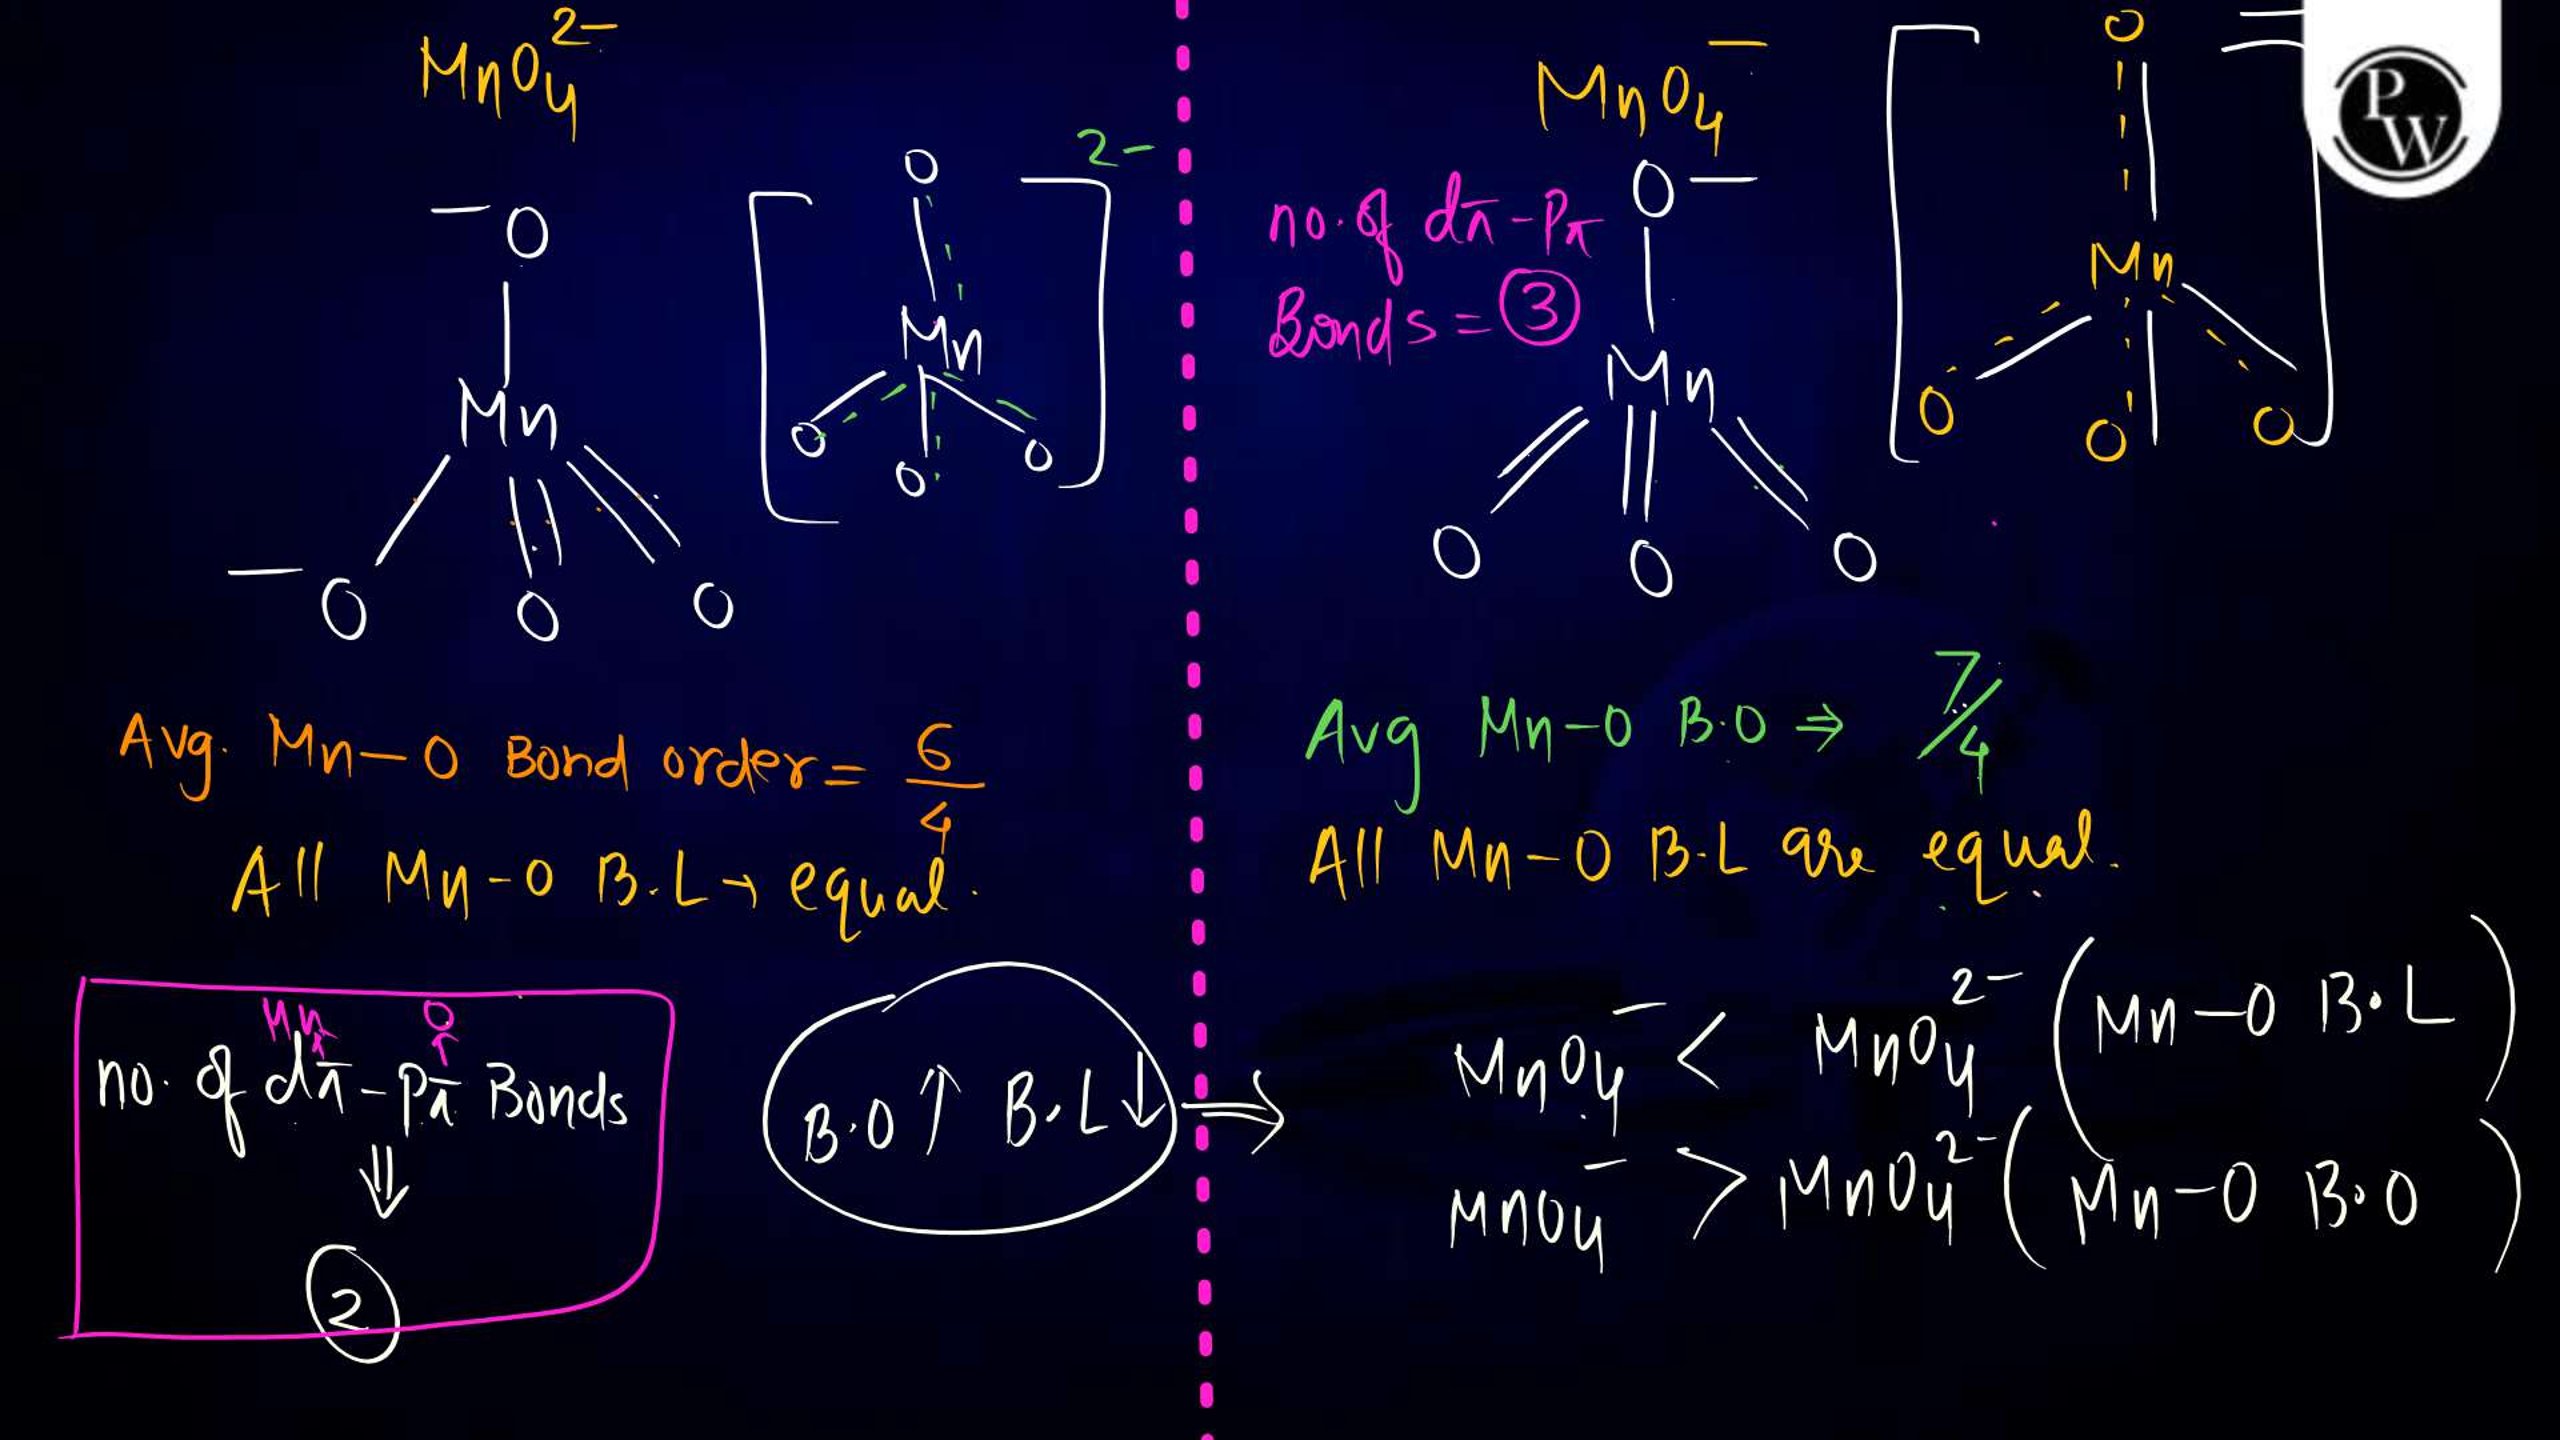 MnO₄²⁻
⁻O
Mn
⁻O O O
O 2-
Mn
O O O
Avg. Mn-O Bond order = 6/4
All Mn-O B.L → equal.
Mn O
no. of dπ-pπ Bonds
⇓
2
B.O↑ B.L↓ ⇒
MnO₄⁻
no. of dπ-Pπ
Bonds = 3
O⁻
Mn
O O O
O
Mn
O O O
PW
Avg Mn-O B.O ⇒ 7/4
All Mn-O B.L are equal.
MnO₄⁻ < MnO₄²⁻ (Mn-O B.L)
MnO₄⁻ > MnO₄²⁻ (Mn-O B.O)